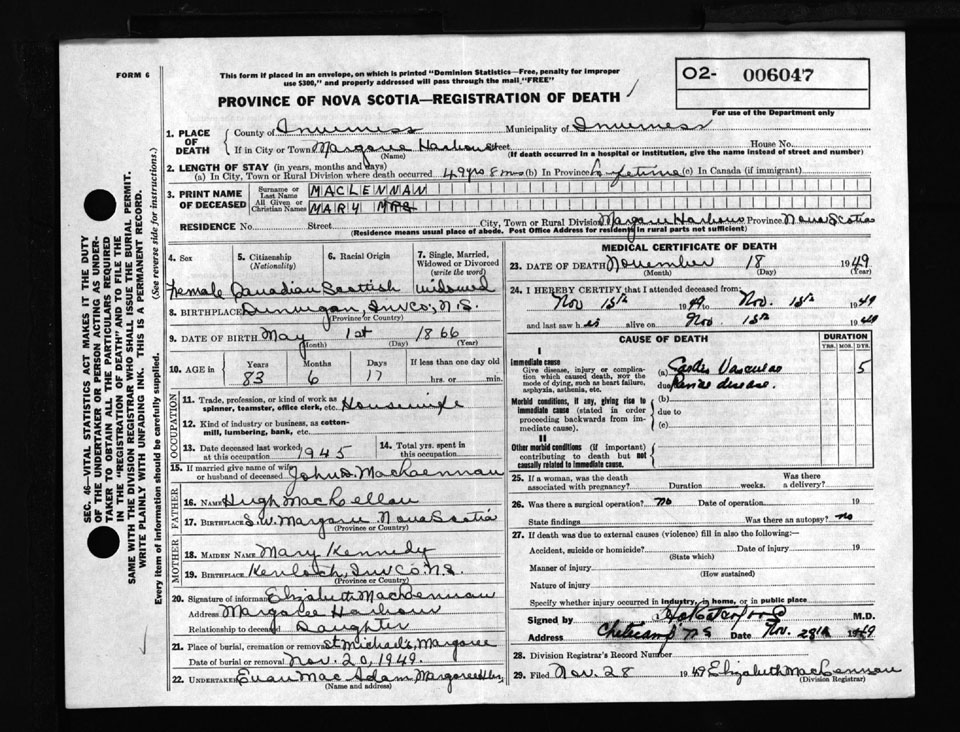 FORM 6
This form if placed in an envelope, on which is printed "Dominion Statistics—Free, penalty for improper
use $300," and properly addressed will pass through the mail "FREE"
PROVINCE OF NOVA SCOTIA—REGISTRATION OF DEATH
02- 006047
For use of the Department only
SEC. 46—VITAL STATISTICS ACT MAKES IT THE DUTY
OF THE UNDERTAKER OR PERSON ACTING AS UNDER-
TAKER TO OBTAIN ALL THE PARTICULARS REQUIRED
IN THE "REGISTRATION OF DEATH" AND TO FILE THE
SAME WITH THE DIVISION REGISTRAR WHO SHALL ISSUE THE BURIAL PERMIT.
WRITE PLAINLY WITH UNFADING INK. THIS IS A PERMANENT RECORD.
Every item of information should be carefully supplied. (See reverse side for instructions.)
1. PLACE OF DEATH
County of Inverness Municipality of Inverness
If in City or Town Margaree Harbour Street House No.
(Name) (If death occurred in a hospital or institution, give the name instead of street and number)
2. LENGTH OF STAY (in years, months and days)
(a) In City, Town or Rural Division where death occurred 49 yrs 8 mos (b) In Province Lifetime (c) In Canada (if immigrant)
3. PRINT NAME OF DECEASED
Surname or Last Name MACLENNAN
All Given or Christian Names MARY MRS
RESIDENCE No. Street City, Town or Rural Division Margaree Harbour Province Nova Scotia
(Residence means usual place of abode. Post Office Address for residents in rural parts not sufficient)
4. Sex 5. Citizenship (Nationality) 6. Racial Origin 7. Single, Married, Widowed or Divorced (write the word)
Female Canadian Scottish Widowed
8. BIRTHPLACE Dunvegan, Inv Co, N.S.
(Province or Country)
9. DATE OF BIRTH May 1st 1866
(Month) (Day) (Year)
10. AGE in Years Months Days If less than one day old
83 6 17 hrs. or min.
OCCUPATION
11. Trade, profession, or kind of work as spinner, teamster, office clerk, etc. Housewife
12. Kind of industry or business, as cotton-mill, lumbering, bank, etc.
13. Date deceased last worked at this occupation 1945 14. Total yrs. spent in this occupation
15. If married give name of wife or husband of deceased John D. MacLennan
FATHER
16. NAME Hugh MacLellan
17. BIRTHPLACE S.W. Margaree Nova Scotia
(Province or Country)
MOTHER
18. MAIDEN NAME Mary Kennedy
19. BIRTHPLACE Kenloch, Inv Co. N.S.
(Province or Country)
20. Signature of informant Elizabeth MacLennan
Address Margaree Harbour
Relationship to deceased Daughter
21. Place of burial, cremation or removal St Michael's, Margaree
Date of burial or removal Nov. 20, 1949.
22. UNDERTAKER Euan MacAdam, Margaree
(Name and address)
MEDICAL CERTIFICATE OF DEATH
23. DATE OF DEATH November 18 1949
(Month) (Day) (Year)
24. I HEREBY CERTIFY that I attended deceased from:
Nov 15th 1949 to Nov. 15th 1949
and last saw her alive on Nov. 15th 1949
CAUSE OF DEATH DURATION
YRS. MOS. DYS.
I
Immediate cause
Give disease, injury or complication which caused death, not the mode of dying, such as heart failure, asphyxia, asthenia, etc.
(a) Cardio Vascular 5
due to Renal disease.
Morbid conditions, if any, giving rise to immediate cause (stated in order proceeding backwards from immediate cause).
(b)
due to
(c)
II
Other morbid conditions (if important) contributing to death but not causally related to immediate cause.
25. If a woman, was the death associated with pregnancy? Duration weeks. Was there a delivery?
26. Was there a surgical operation? no Date of operation 19
State findings Was there an autopsy? no
27. If death was due to external causes (violence) fill in also the following:—
Accident, suicide or homicide? Date of injury 19
(State which)
Manner of injury
(How sustained)
Nature of injury
Specify whether injury occurred in industry, in home, or in public place
Signed by M.D.
Address Cheticamp NS Date Nov. 28th 1949
28. Division Registrar's Record Number
29. Filed Nov. 28 1949 Elizabeth MacLennan
(Division Registrar)